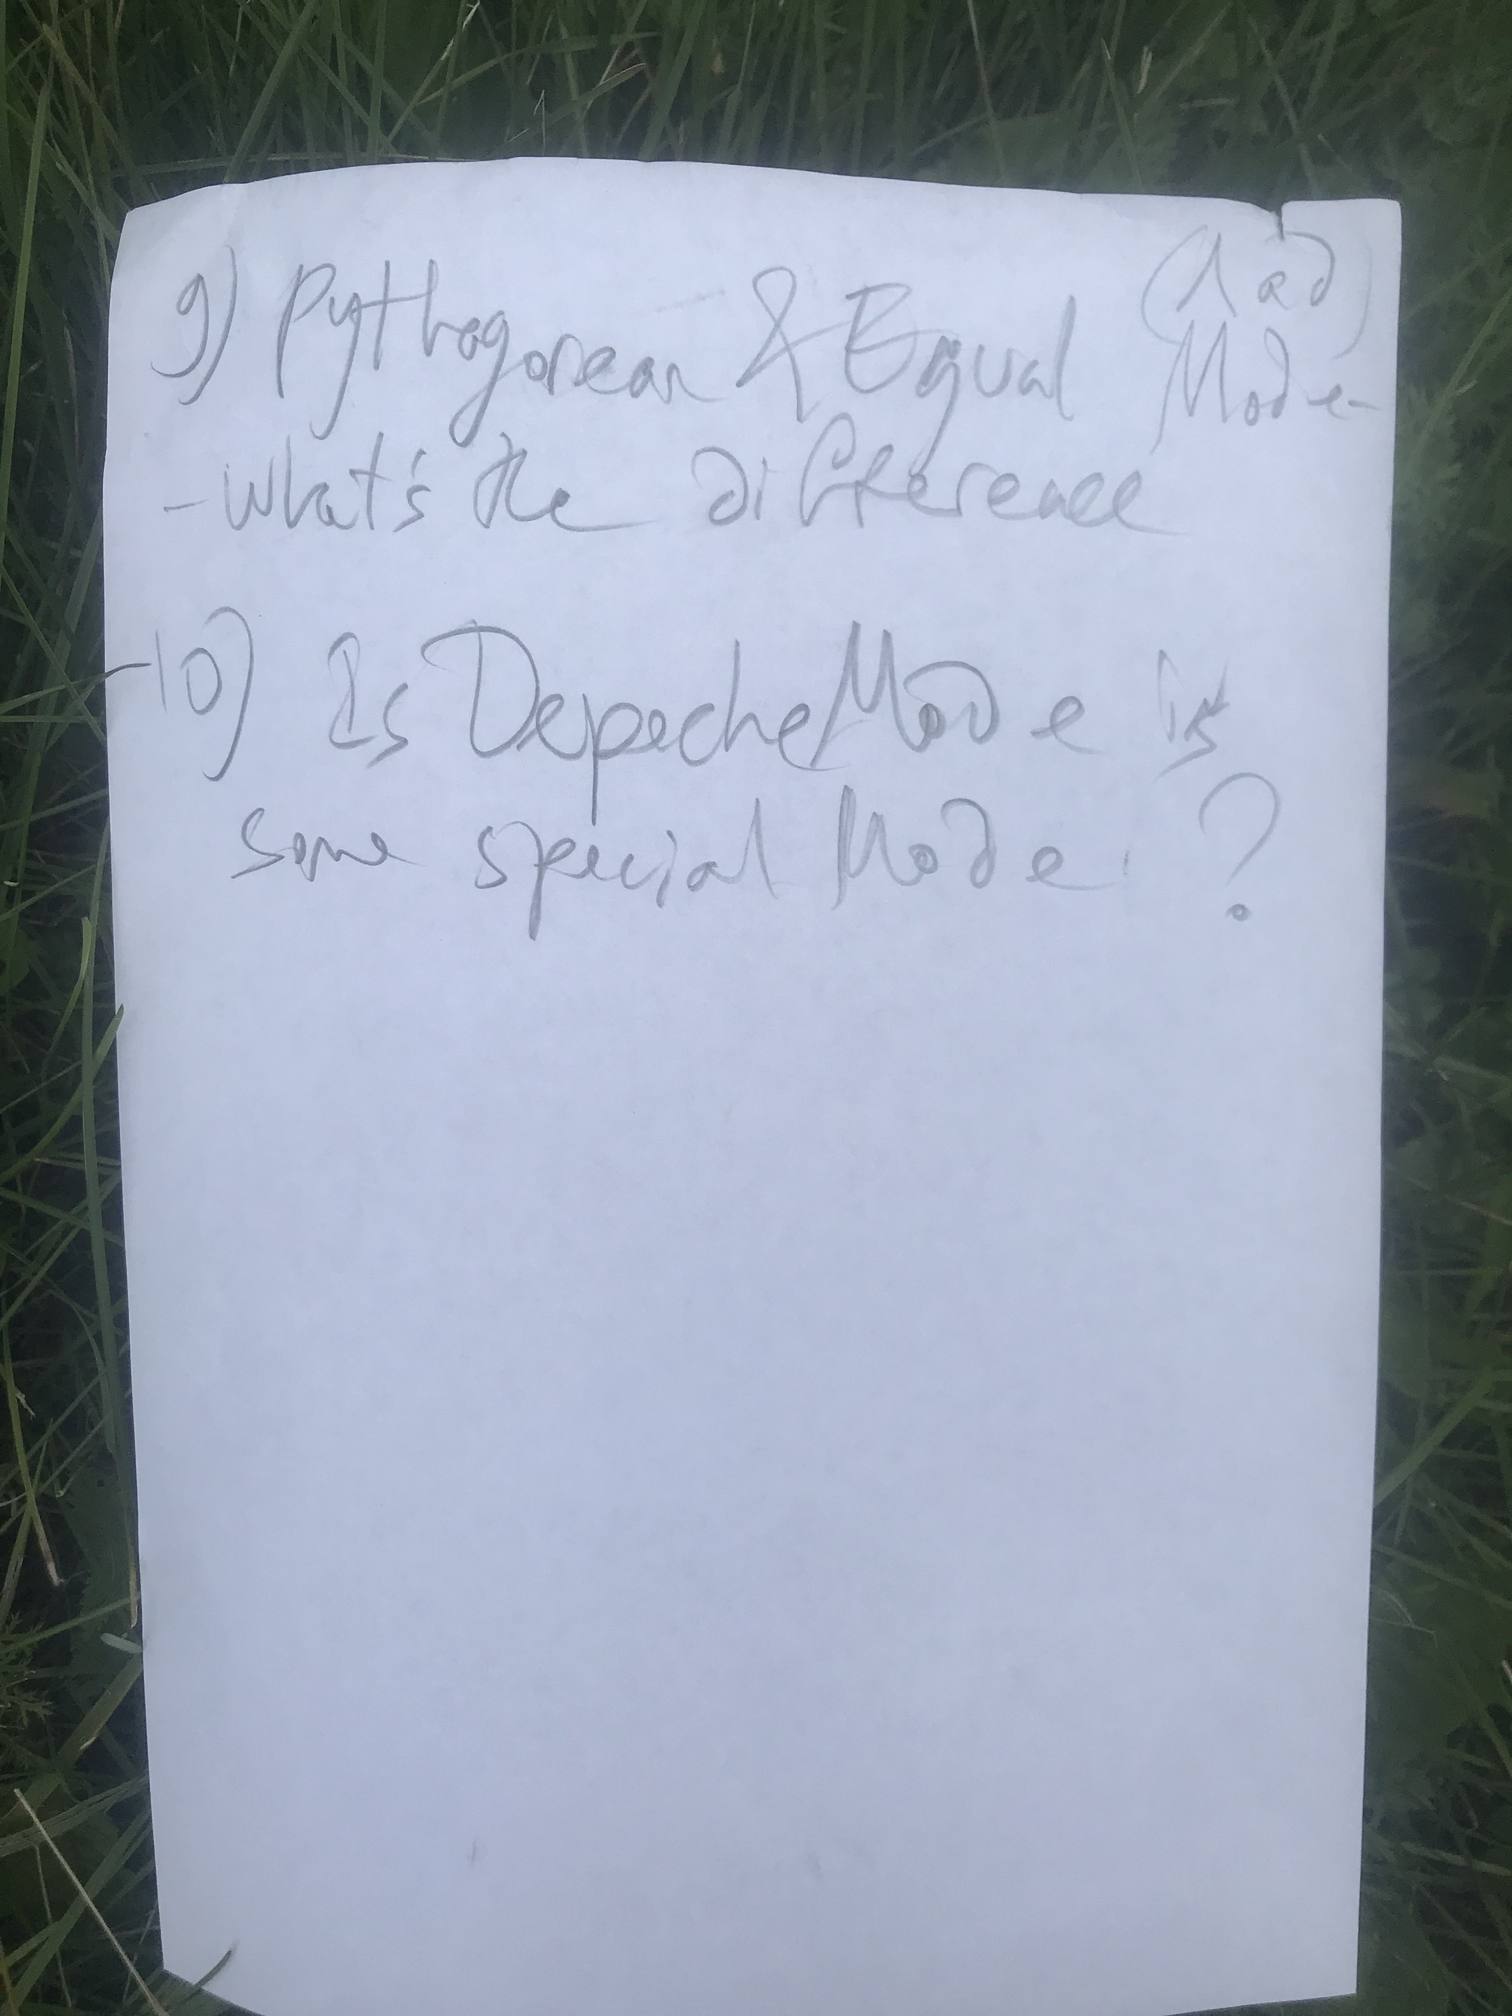 9) Pythagorean & Equal
Mode
- what's the difference
10) Is Depeche Mode is
some special Mode ?